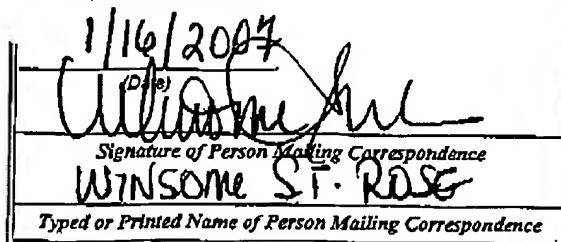 1/16/2007
(Date)
Winsome
Signature of Person Mailing Correspondence
WINSOME ST. ROSE
Typed or Printed Name of Person Mailing Correspondence